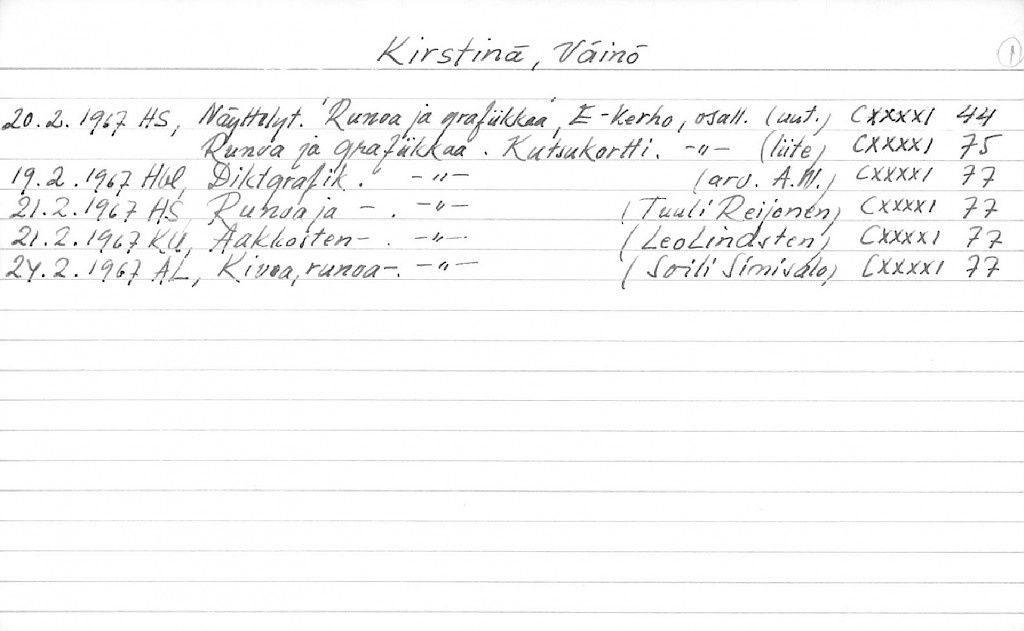 Kirstinä, Väinö
1
20.2.1967 HS, Näyttelyt. "Runoa ja grafiikkaa", E-Kerho, osall. (uut.) CXXXXI 44
Runoa ja grafiikkaa. Kutsukortti. -"- (liite) CXXXXI 75
19.2.1967 Hbl, Diktgrafik. -"- (arv. A.W.) CXXXXI 77
21.2.1967 HS, Runoa ja -. -"- (Tuuli Reijonen) CXXXXI 77
21.2.1967 KU, Aakkosten-. -"- (Leo Lindsten) CXXXXI 77
24.2.1967 AL, Kivoa, runoa-. -"- (Soili Sinisalo) CXXXXI 77